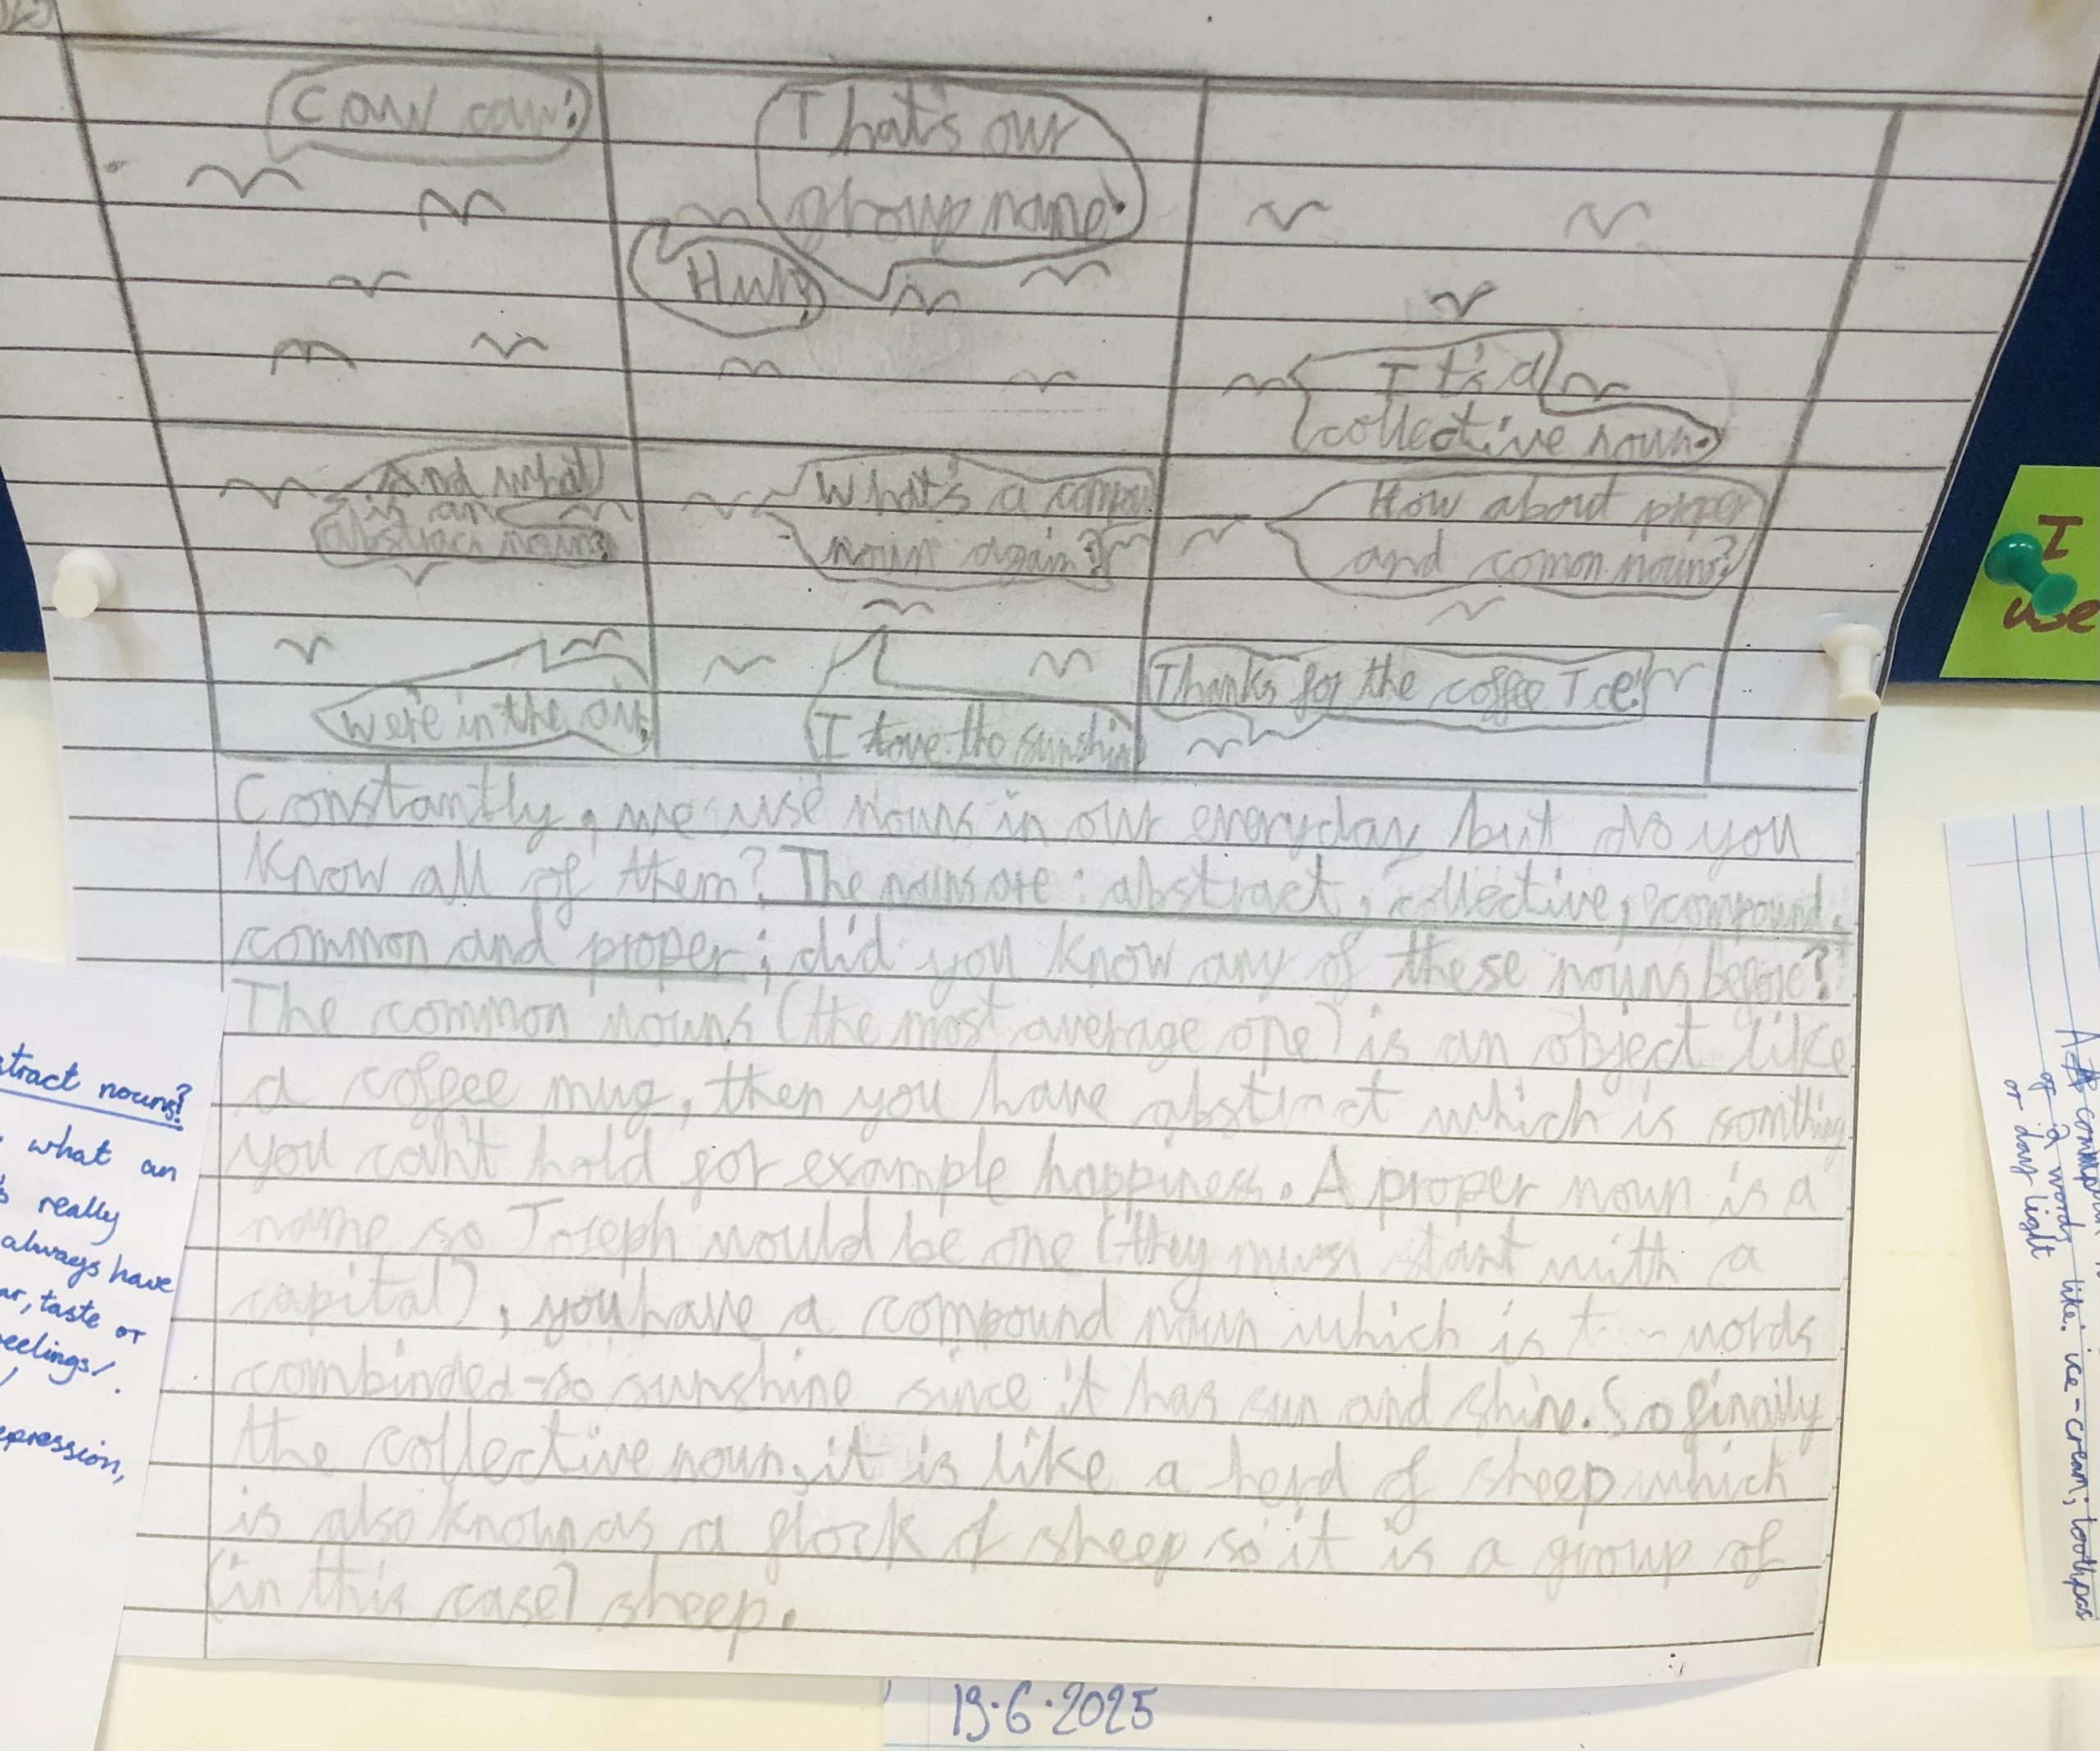 Caw caw!
That's our
group name!
Huh?
It's a
collective noun.
And what
is an
abstract noun?
What's a compou
noun again?
How about proper
and comon nouns?
We're in the air.
I love the sunshin
Thanks for the coffee Joe!
Constantly, we use nouns in our everyday but do you
know all of them? The nouns are: abstract, collective, compound,
common and proper; did you know any of these nouns before?
The common nouns (the most average one) is an object like
a coffee mug, then you have abstract which is somthing
you can't hold for example happiness. A proper noun is a
name so Joseph would be one (they must start with a
capital), you have a compound noun which is words
combinded-so sunshine since it has sun and shine. So finaily
the collective noun, it is like a herd of sheep which
is also known as a flock of sheep so it is a group of
(in this case) sheep.
stract nouns?
what an
really
always have
ar, taste or
eelings/.
epression,
I
we
A compou
of words like: ice-cream; toothpas
or day light
19.6.2025